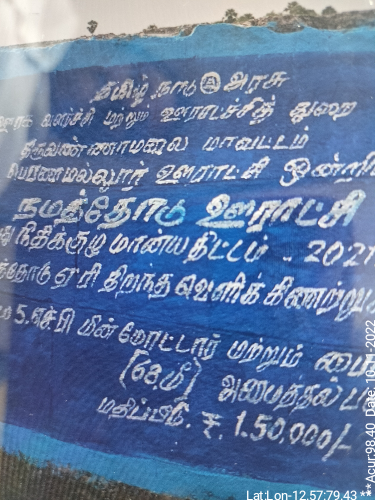 தமிழ் நாடு அரசு
ஊரக வளர்ச்சி மற்றும் ஊராட்சித் துறை
திருவண்ணாமலை மாவட்டம்
பெரணமல்லூர் ஊராட்சி ஒன்றி
நமத்தோடு ஊராட்சி
நிதிக்குழு மான்ய திட்டம் - 2021
த்தோடு ஏரி திறந்த வெளிக் கிணற்று
5.எச்.பி மின் மோட்டார் மற்றும் பை
(68மீ) அமைத்தல்
மதிப்பீடு. ₹. 1.50,000/-
Lat:Lon-12.57:79.43 **Acur:98.40 Date:10-11-2022